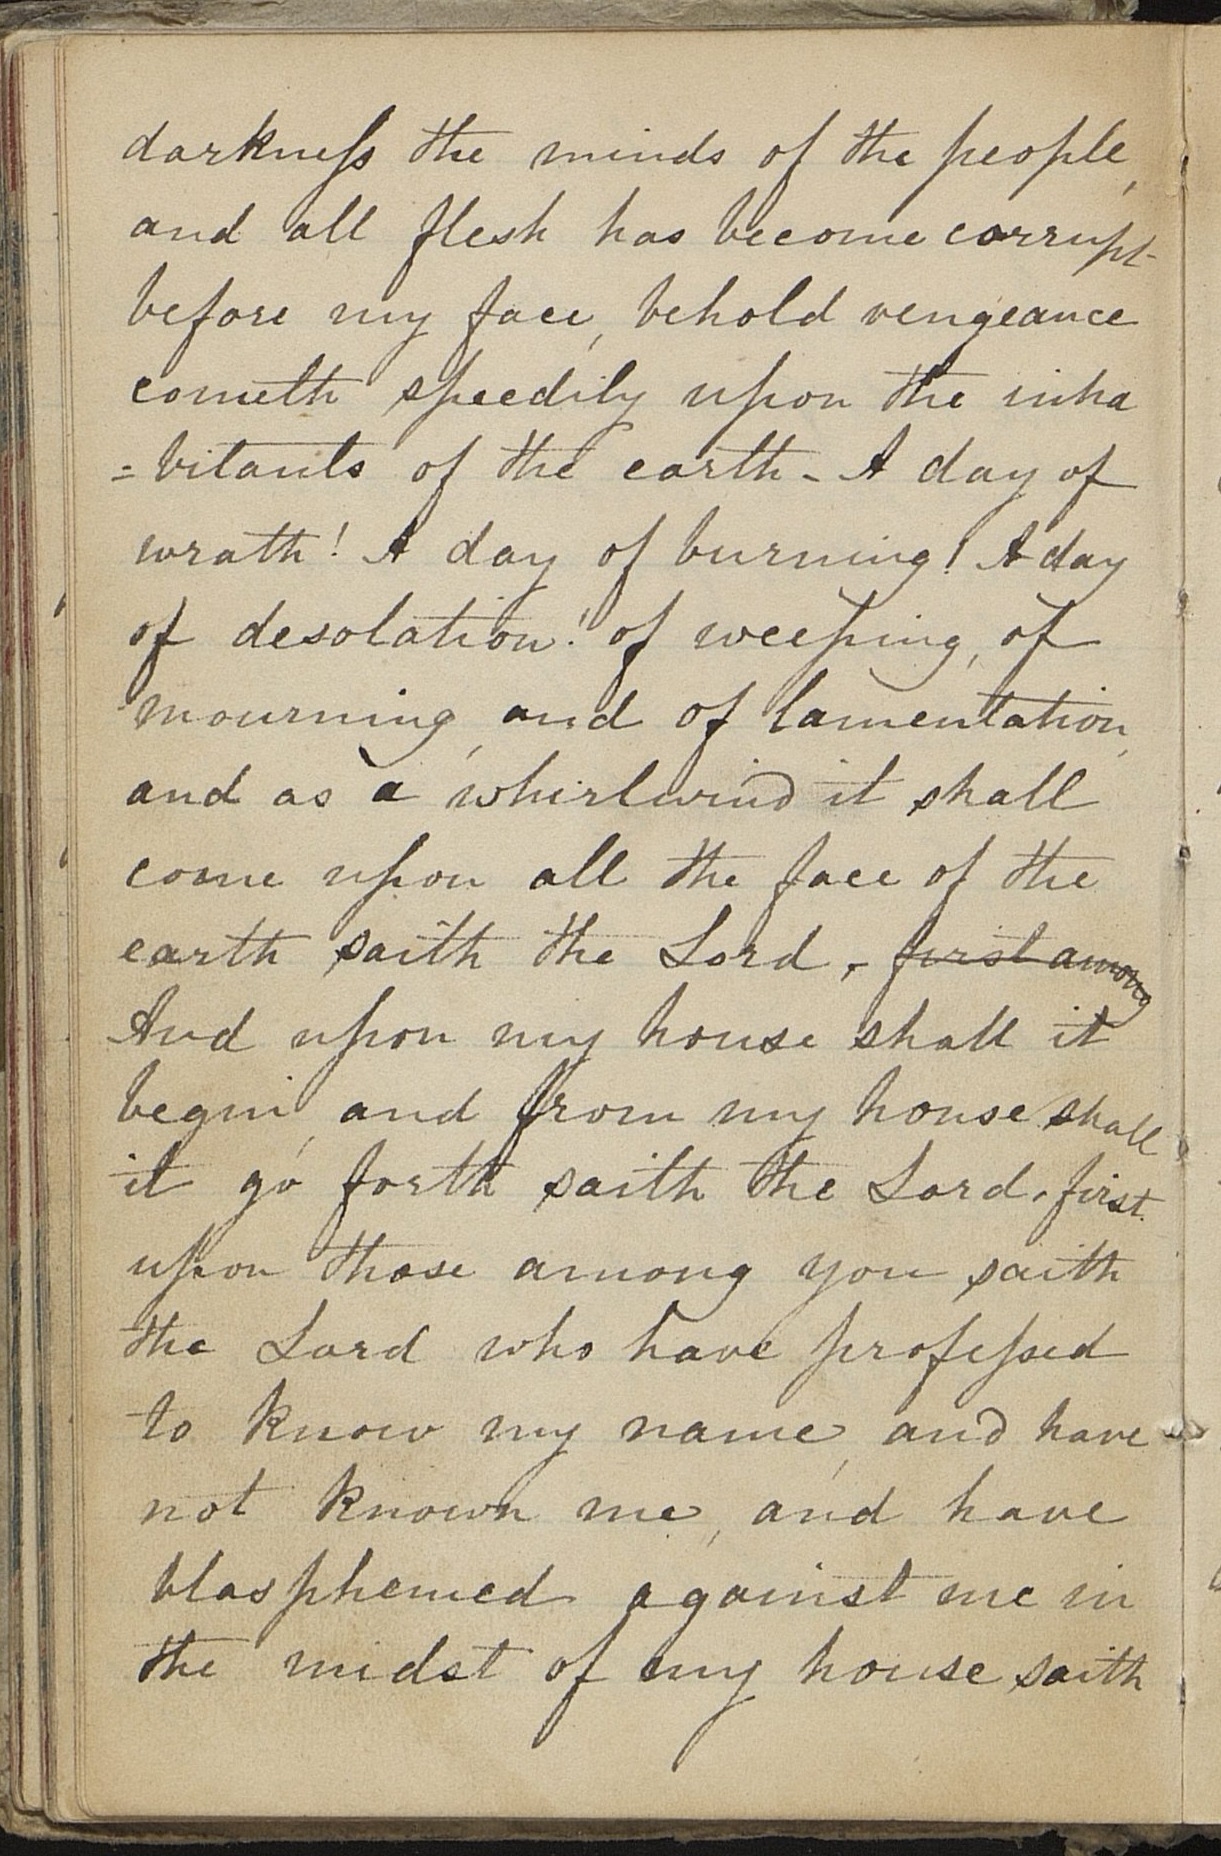 darkneſs the minds of the people,
and all flesh has become corrupt
before my face, behold vengeance
cometh speedily upon the inha
=bitants of the earth - A day of
wrath! A day of burning! A day
of desolation! of weeping, of
mourning, and of lamentation,
and as a whirlwind it shall
come upon all the face of the
earth saith the Lord. first among
And upon my house shall it
begin, and from my house shall
it go forth saith the Lord. first
upon those among you saith
the Lord who have profeſsed
to know my name, and have
not known me, and have
blasphemed against me in
the midst of my house saith